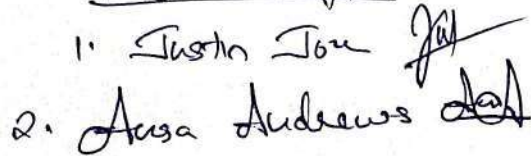 1. Justin Jose
2. Ansa Andrews